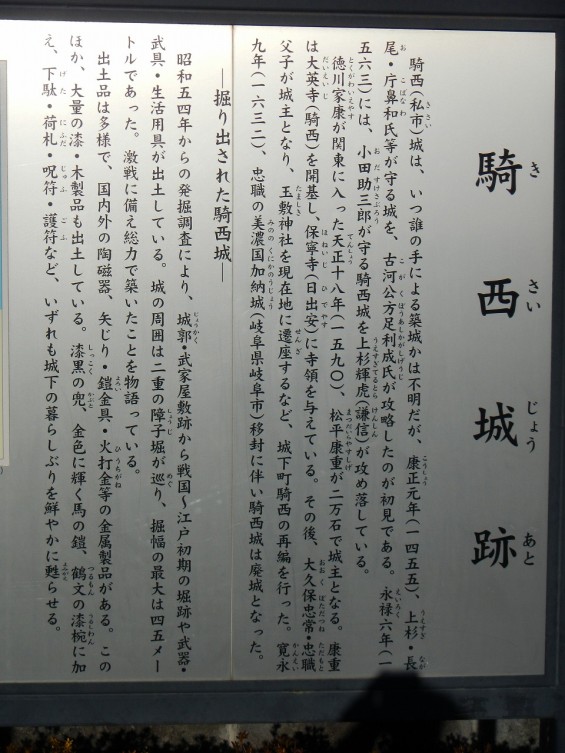 騎西城跡
きさいじょうあと
騎西(私市)城は、いつ誰の手による築城かは不明だが、康正元年(一四五五)、上杉・長
尾・庁鼻和氏等が守る城を、古河公方足利成氏が攻略したのが初見である。永禄六年(一
五六三)には、小田助三郎が守る騎西城を上杉輝虎(謙信)が攻め落している。
徳川家康が関東に入った天正十八年(一五九〇)、松平康重が二万石で城主となる。康重
は大英寺(騎西)を開基し、保寧寺(日出安)に寺領を与えている。その後、大久保忠常・忠職
父子が城主となり、玉敷神社を現在地に遷座するなど、城下町騎西の再編を行った。寛永
九年(一六三二)、忠職の美濃国加納城(岐阜県岐阜市)移封に伴い騎西城は廃城となった。
―掘り出された騎西城―
昭和五四年からの発掘調査により、城郭・武家屋敷跡から戦国~江戸初期の堀跡や武器・
武具・生活用具が出土している。城の周囲は二重の障子堀が巡り、掘幅の最大は四五メー
トルであった。激戦に備え総力で築いたことを物語っている。
出土品は多様で、国内外の陶磁器、矢じり・鎧金具・火打金等の金属製品がある。この
ほか、大量の漆・木製品も出土している。漆黒の兜、金色に輝く馬の鎧、鶴文の漆椀に加
え、下駄・荷札・呪符・護符など、いずれも城下の暮らしぶりを鮮やかに甦らせる。